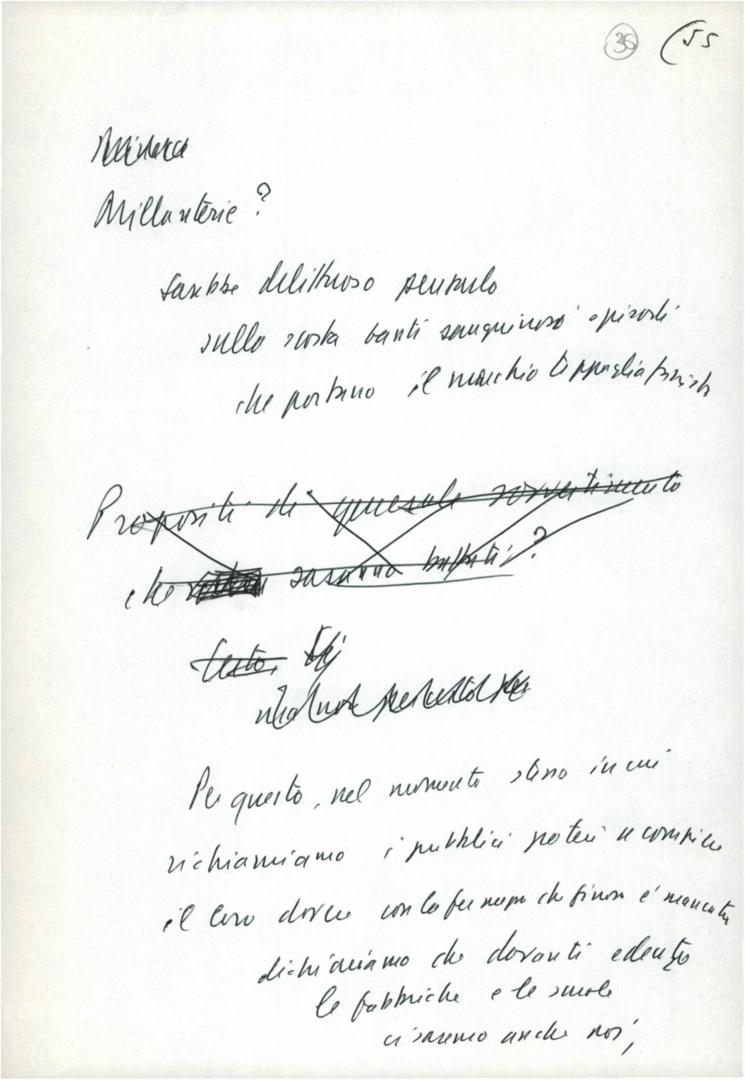 36 55
Minacce
Millanterie?
Sarebbe delittuoso pensarlo
sulla scorta tanti sanguinosi episodi
che portano il marchio
Propositi di generale sovvertimento
che saranno battuti?
Certo,
Per questo, nel momento stesso in cui
richiamiamo i pubblici poteri a compiere
il loro dovere con la fermezza che finora è mancata
dichiariamo che davanti e dentro
le fabbriche e le scuole
ci saremo anche noi,